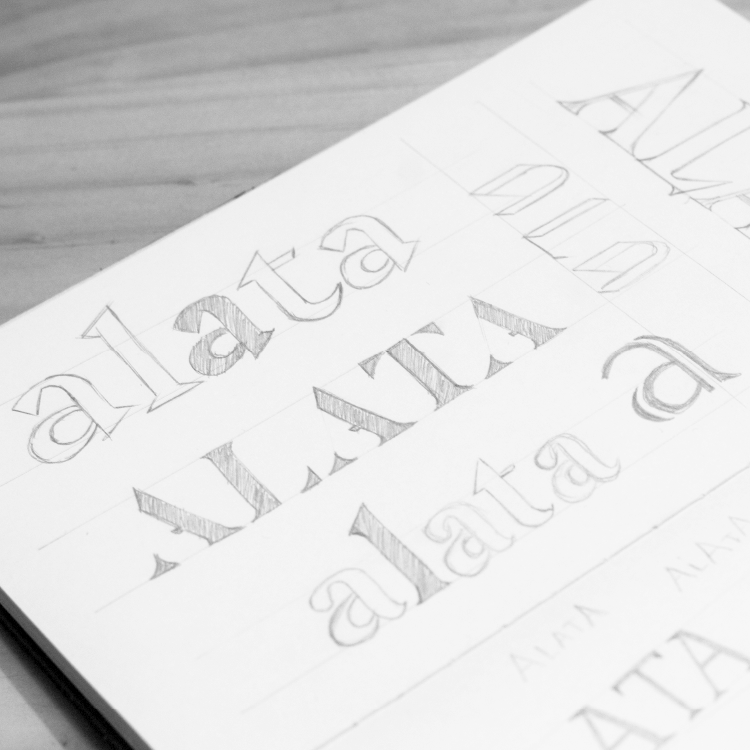 alata
ALATA
alata a
ALA
ALA
ALATA
ALATA
ATA